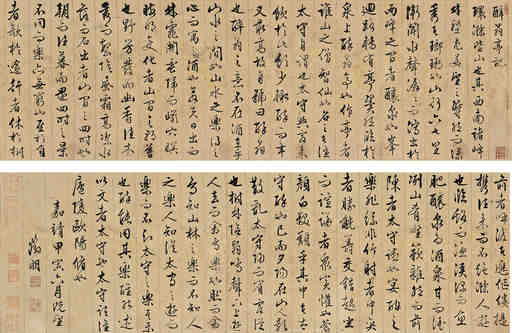 醉翁亭記
環滁皆山也其西南諸峰
林壑尤美望之蔚然而深
秀者瑯琊也山行六七里漸
聞水聲潺潺而瀉出於
兩峰之間者釀泉也峰
迴路轉有亭翼然臨於
泉上者醉翁亭也作亭者誰
山之僧智仙也名之者誰
太守自謂也太守與客來
飲於此飲少輒醉而年
又最高故自號曰醉翁
也醉翁之意不在酒在乎
山水之間也山水之樂得之
心而寓之酒也若夫日出而
林霏開雲歸而巖穴暝
晦明變化者山間之朝暮
也野芳發而幽香佳木
秀而繁陰風霜高潔水
落而石出者山間之四時也
朝而往暮而歸四時之景
不同而樂亦無窮也至於負
者歌於途行者休於樹
前者呼後者應傴僂提
攜往來而不絕滁人遊
也臨谿而漁谿深而魚
肥釀泉為酒泉甘而酒
洌山肴野蔌雜然而前
陳者太守宴也宴酣之
樂非絲非竹射者中弈
者勝觥籌交錯起坐
而諠譁者眾賓懽也蒼
顏白髮頹乎其中者太
守醉也已而夕陽在山人影
散亂太守歸而賓客從
也樹林陰翳鳴聲上下遊
人去而禽鳥樂也然而禽鳥
知山林之樂而不知人
之樂人知從太守之遊而
樂而不知太守之樂其樂
也醉能同其樂醒能述
以文者太守也太守謂誰
廬陵歐陽修也
嘉靖甲寅六月既望
徵明